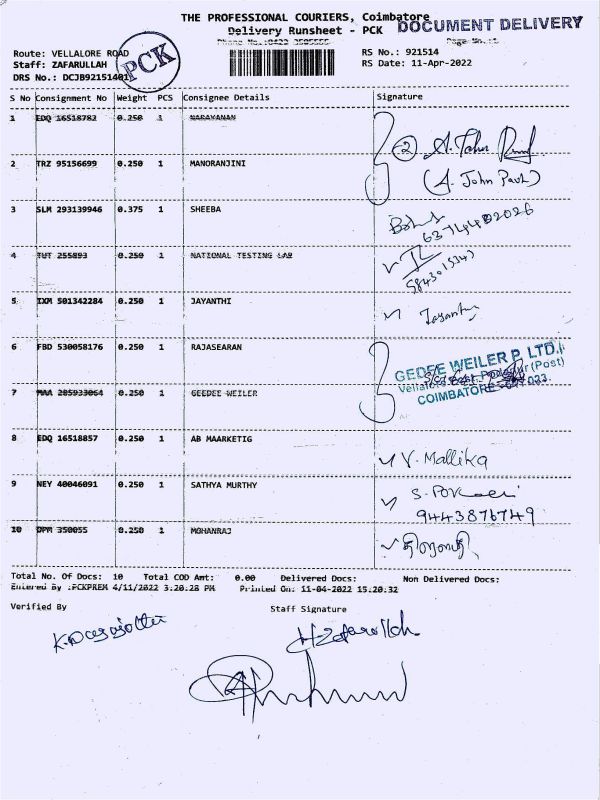 THE PROFESSIONAL COURIERS, Coimbatore
Delivery Runsheet - PCK
DOCUMENT DELIVERY
Route: VELLALORE ROAD
Staff: ZAFARULLAH
DRS No.: DCJB92151401
PCK
RS No.: 921514
RS Date: 11-Apr-2022
S No Consignment No Weight PCS Consignee Details Signature
1 EDQ 16518782 0.250 1 NARAYANAN
2 TRZ 95156699 0.250 1 MANORANJINI
2
(A. John Paul)
3 SLM 293139946 0.375 1 SHEEBA
4 TUT 255893 0.250 1 NATIONAL TESTING LAB
5 IXM 501342284 0.250 1 JAYANTHI
6 FBD 530058176 0.250 1 RAJASEARAN
GEDEE WEILER P. LTD.,
COIMBATORE
7 MAA 285933064 0.250 1 GEEDEE WEILER
8 EDQ 16518857 0.250 1 AB MAARKETIG V. Mallika
9 NEY 40046091 0.250 1 SATHYA MURTHY
9443876749
10 OPM 350055 0.250 1 MOHANRAJ
Total No. Of Docs: 10 Total COD Amt: 0.00 Delivered Docs: Non Delivered Docs:
Entered By :PCKPREM 4/11/2022 3:20:28 PM Printed On: 11-04-2022 15.20:32
Verified By Staff Signature
H Zafarullah